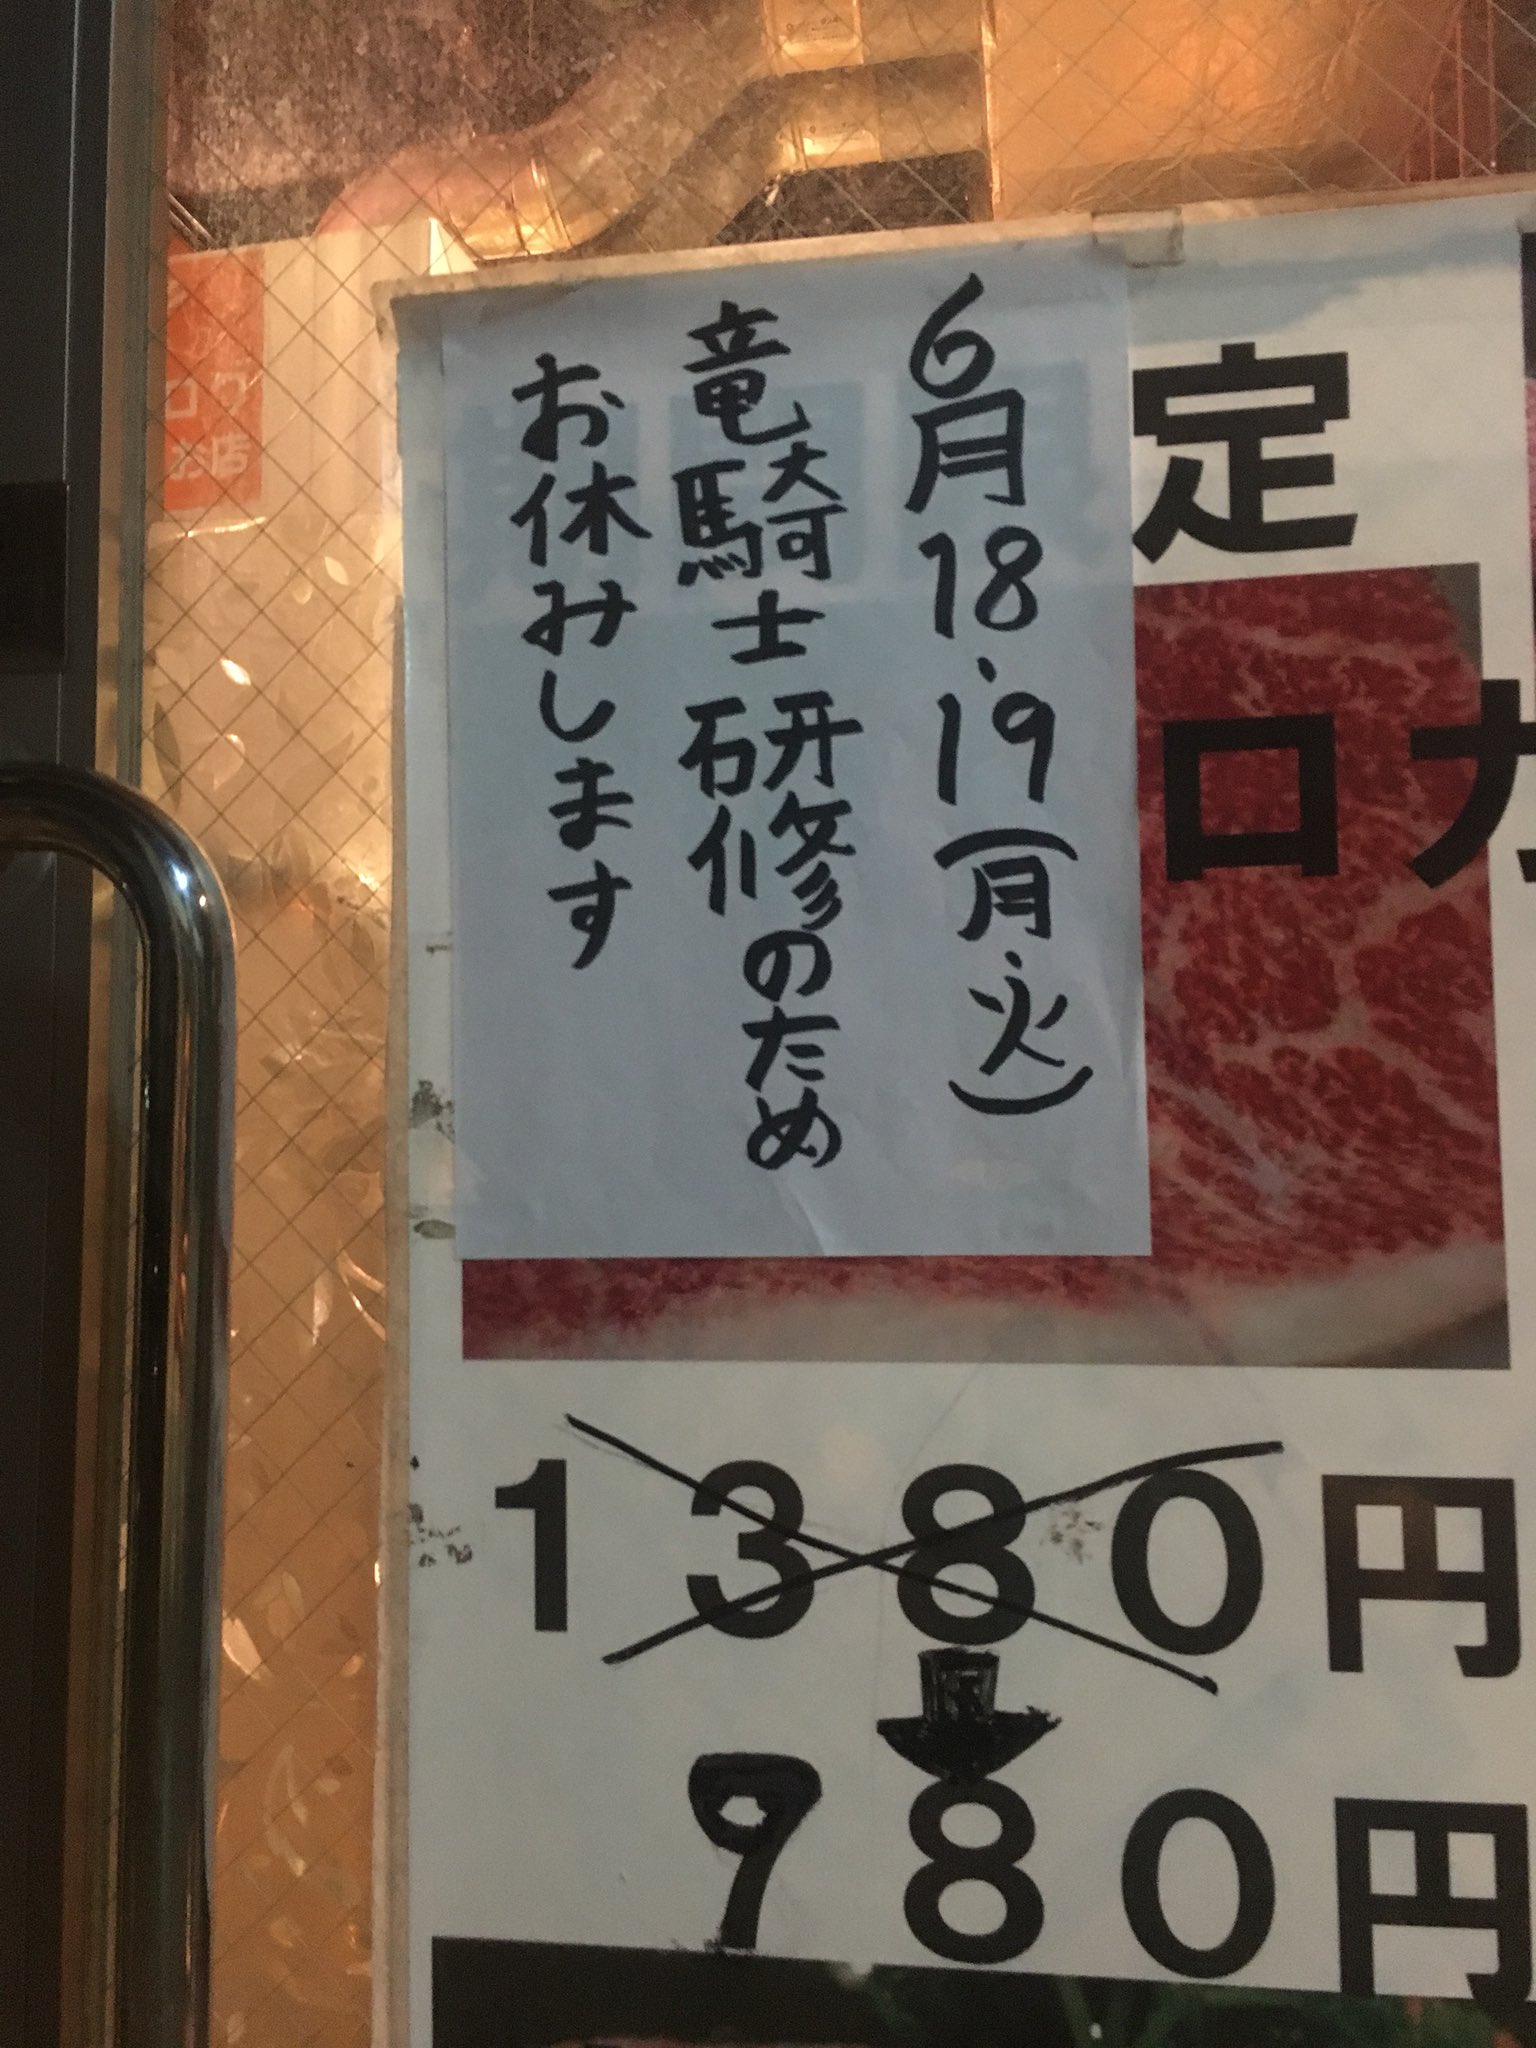 6月18.19(月・火)
竜騎士研修のため
お休みします
定
ロ
1380円
980円
ロワ
お店